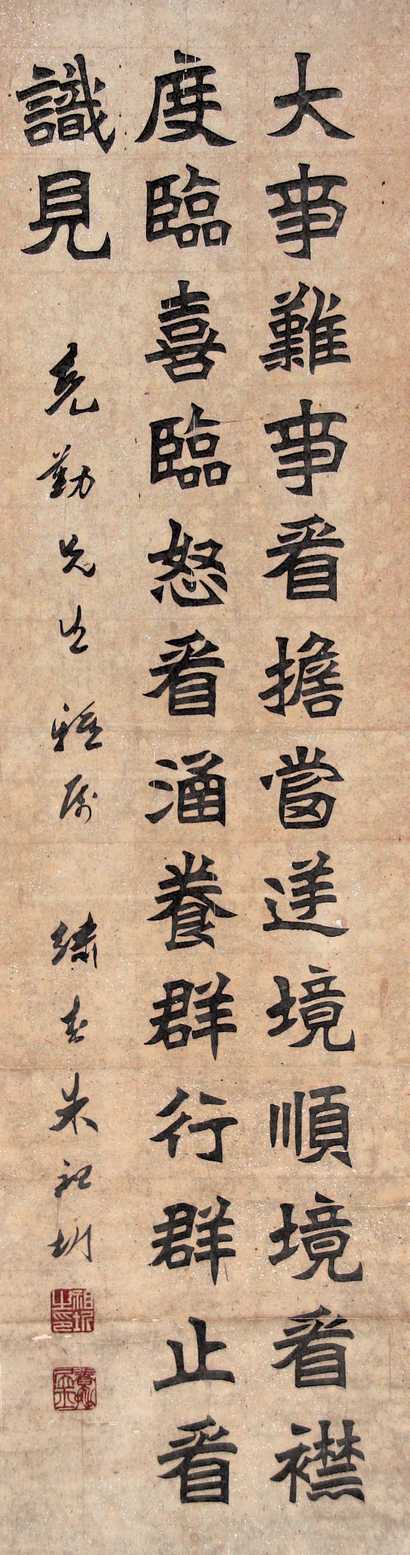 大事難事看擔當逆境順境看襟
度臨喜臨怒看涵養群行群止看
識見
堯勤先生雅屬
繡春朱祖圻